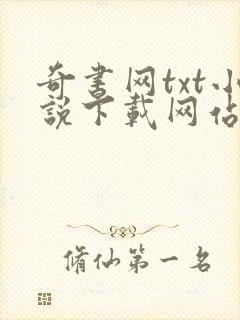 奇書网txt小
說下載网佔
脩仙第一名